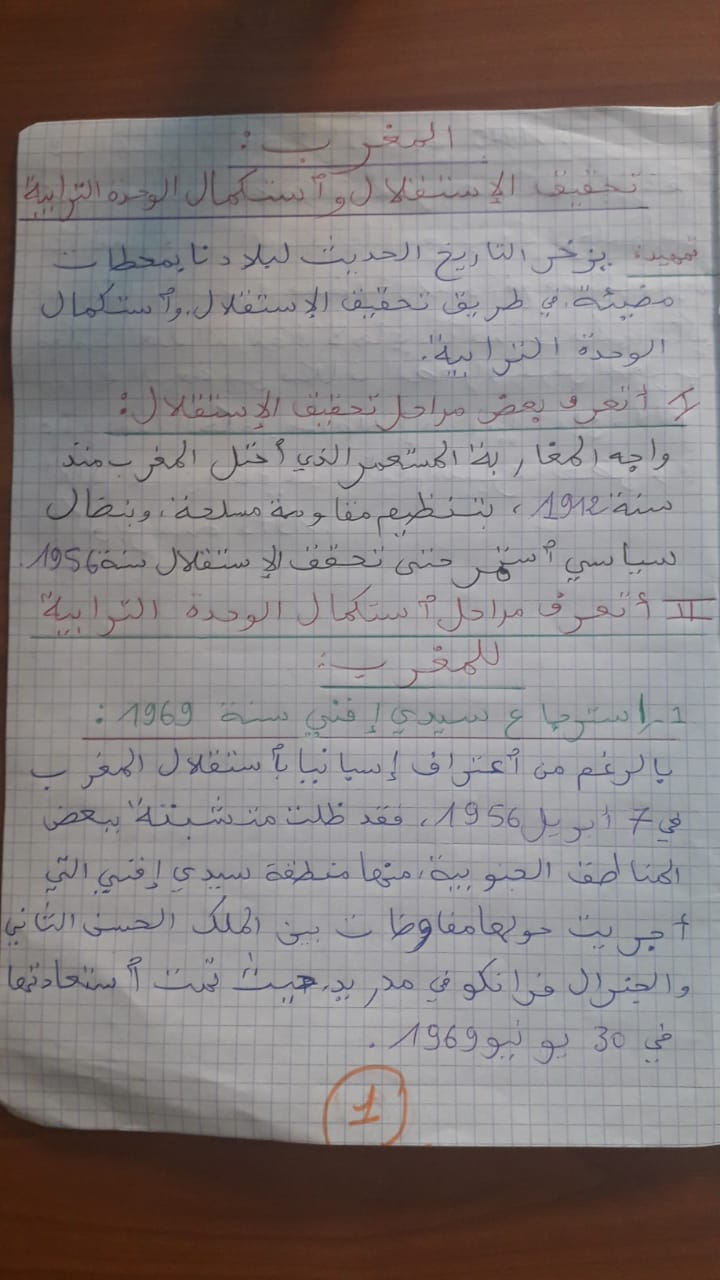 المغرب:
تحقيق الإستقلال وٱستكمال الوحدة الترابية
تمهيد: يزخر التاريخ الحديث لبلادنا بمحطات
مضيئة، في طريق تحقيق الإستقلال. وٱستكمال
الوحدة الترابية.
I أتعرف بعض مراحل تحقيق الإستقلال:
واجه المغاربة المستعمر الذي ٱحتل المغرب منذ
سنة 1912، بتنظيم مقاومة مسلحة، وبنضال
سياسي ٱستمر حتى تحقق الإستقلال سنة 1956.
II أتعرف مراحل ٱستكمال الوحدة الترابية
للمغرب:
1- استرجاع سيدي إفني سنة 1969:
بالرغم من ٱعتراف إسبانيا بٱستقلال المغرب
في 7 أبريل 1956، فقد ظلت متشبتة ببعض
المناطق الجنوبية، منها منطقة سيدي إفني التي
أجريت حولها مفاوظات بين الملك الحسن الثاني
والجنرال فرانكو في مدريد، حيث تمت ٱستعادتها
في 30 يونيو 1969.
1